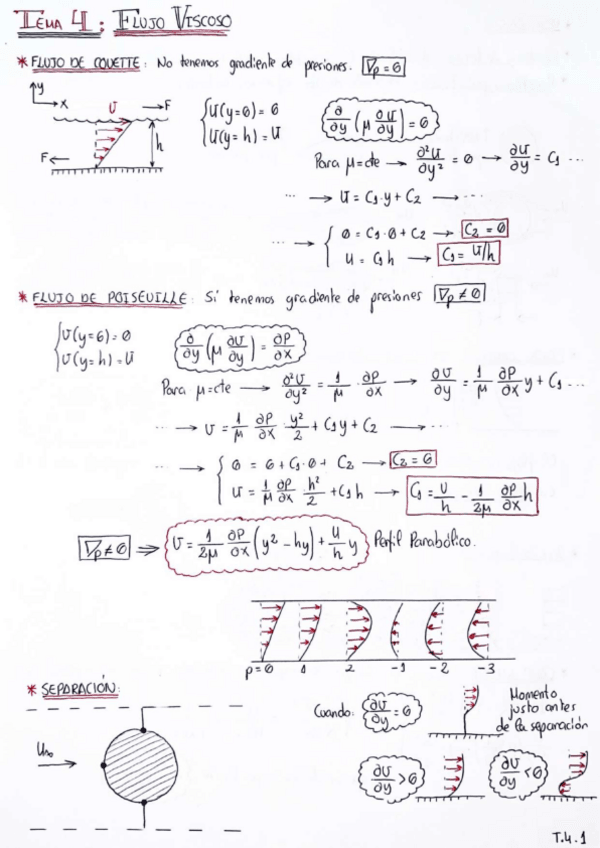 TEMA 4: FLUJO VISCOSO
* FLUJO DE COUETTE: No tenemos gradiente de presiones. ∇p = 0
y
x
U → F
{ U(y=0) = 0
{ U(y=h) = U
∂/∂y (μ ∂U/∂y) = 0
h
F ←
Para μ=cte → ∂²U/∂y² = 0 → ∂U/∂y = C1 ...
... → U = C1·y + C2 → ...
... → { 0 = C1·0 + C2 → C2 = 0
{ U = C1 h → C1 = U/h
* FLUJO DE POISEUILLE: Sí tenemos gradiente de presiones ∇p ≠ 0
{ U(y=0) = 0
{ U(y=h) = U
∂/∂y (μ ∂U/∂y) = ∂P/∂x
Para μ=cte → ∂²U/∂y² = 1/μ · ∂P/∂x → ∂U/∂y = 1/μ ∂P/∂x y + C1 ...
... → U = 1/μ ∂P/∂x · y²/2 + C1 y + C2 → ...
... → { 0 = 0 + C1·0 + C2 → C2 = 0
{ U = 1/μ ∂P/∂x · h²/2 + C1 h → C1 = U/h - 1/2μ ∂P/∂x h
∇p ≠ 0 ⇒ U = 1/2μ ∂P/∂x (y² - hy) + U/h y Perfil Parabólico.
p=0 1 2 -1 -2 -3
* SEPARACIÓN:
U∞
Cuando: ∂U/∂y = 0
Momento
justo antes
de la separación
∂U/∂y > 0
∂U/∂y < 0
T.4.1